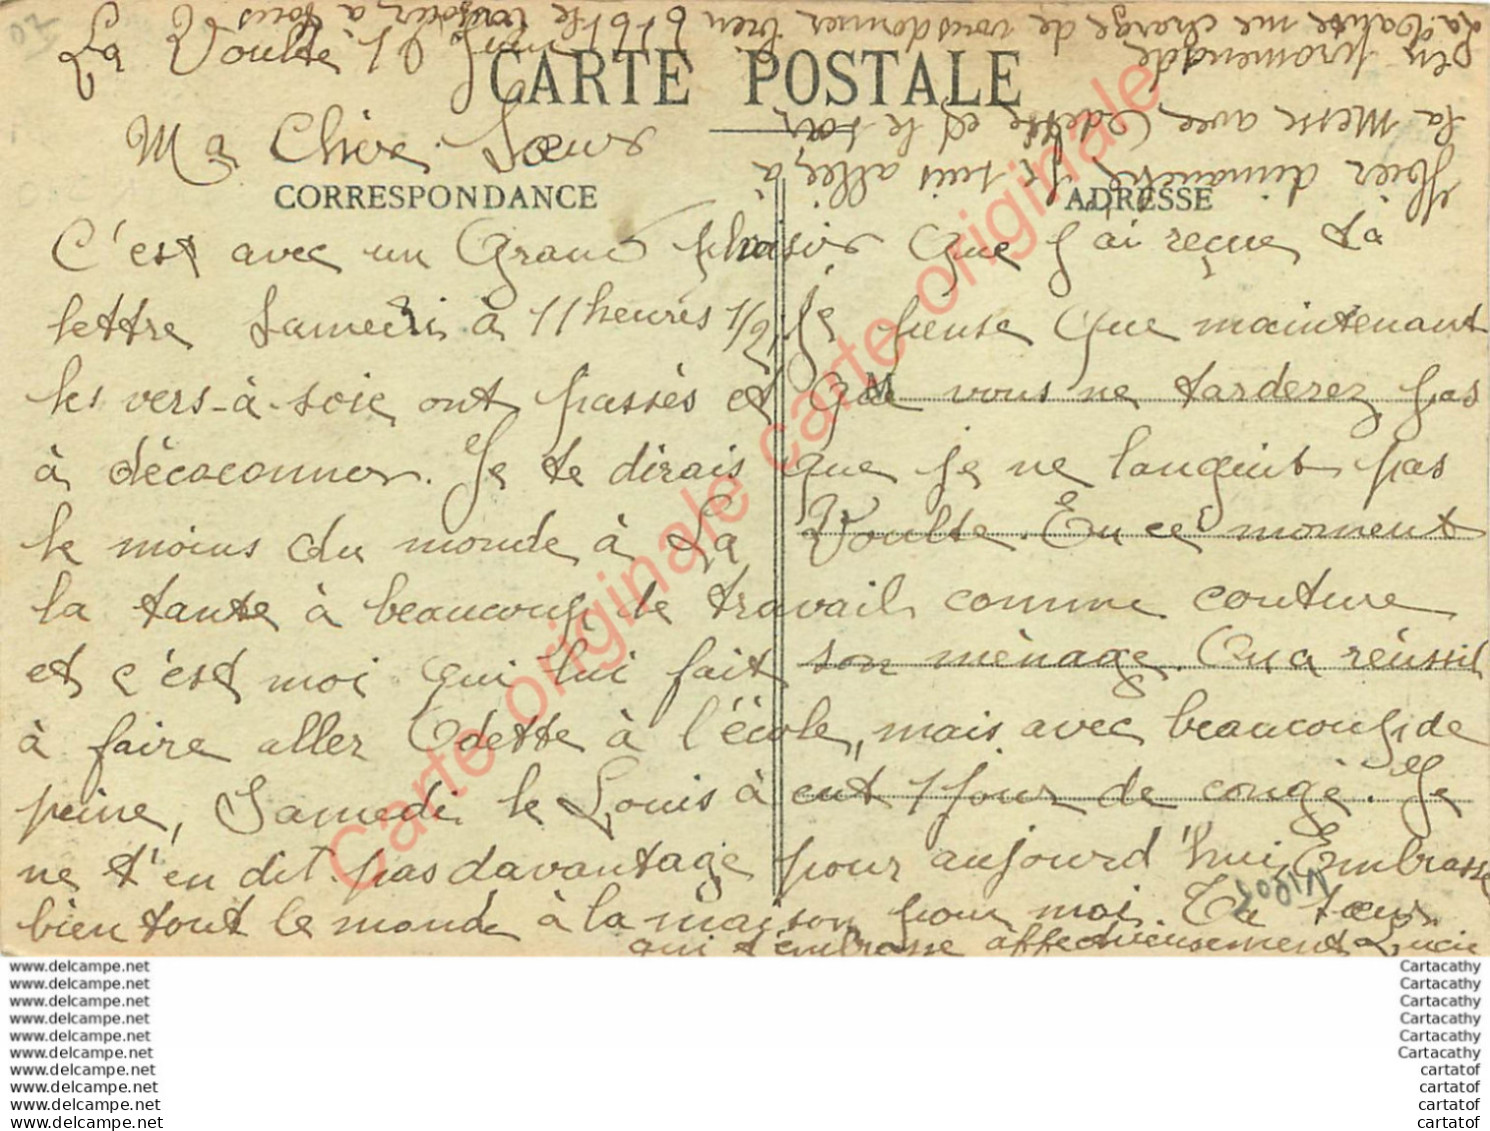 La Voulte 16 Juin
CARTE POSTALE
Ma Chère Sœur
CORRESPONDANCE
ADRESSE
C'est avec un Grand plaisir que j'ai reçue ta
lettre Samedi à 11 heures 1/2. Je pense que maintenant
les vers-à-soie ont passés et que vous ne tarderez pas
à décoconner. Je te dirais que je ne languit pas
le moins du monde à La Voulte. En ce moment
la tante à beaucoup de travail comme couture
et c'est moi qui lui fait son ménage. On a réussit
à faire aller Odette à l'école, mais avec beaucoup de
peine, Samedi le Louis à eut 1 jour de congé. Je
ne t'en dit pas davantage pour aujourd'hui, Embrasse
bien tout le monde à la maison pour moi. Ta sœur
qui t'embrasse affectueusement Lucie
Hier dimanche je suis allée à
la Messe avec Odette et le soir
en promenade
La tante me charge de vous donner bien le bonjour à tous
M
Carte originale carte originale Carte originale
www.delcampe.net
www.delcampe.net
www.delcampe.net
www.delcampe.net
www.delcampe.net
www.delcampe.net
www.delcampe.net
www.delcampe.net
www.delcampe.net
www.delcampe.net
Cartacathy
Cartacathy
Cartacathy
Cartacathy
Cartacathy
Cartacathy
cartatof
cartatof
cartatof
cartatof